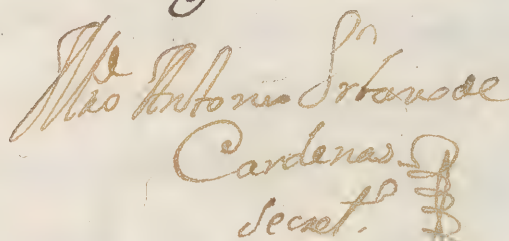 Mro Antonio Ortavo de
Cardenas
Secret.o